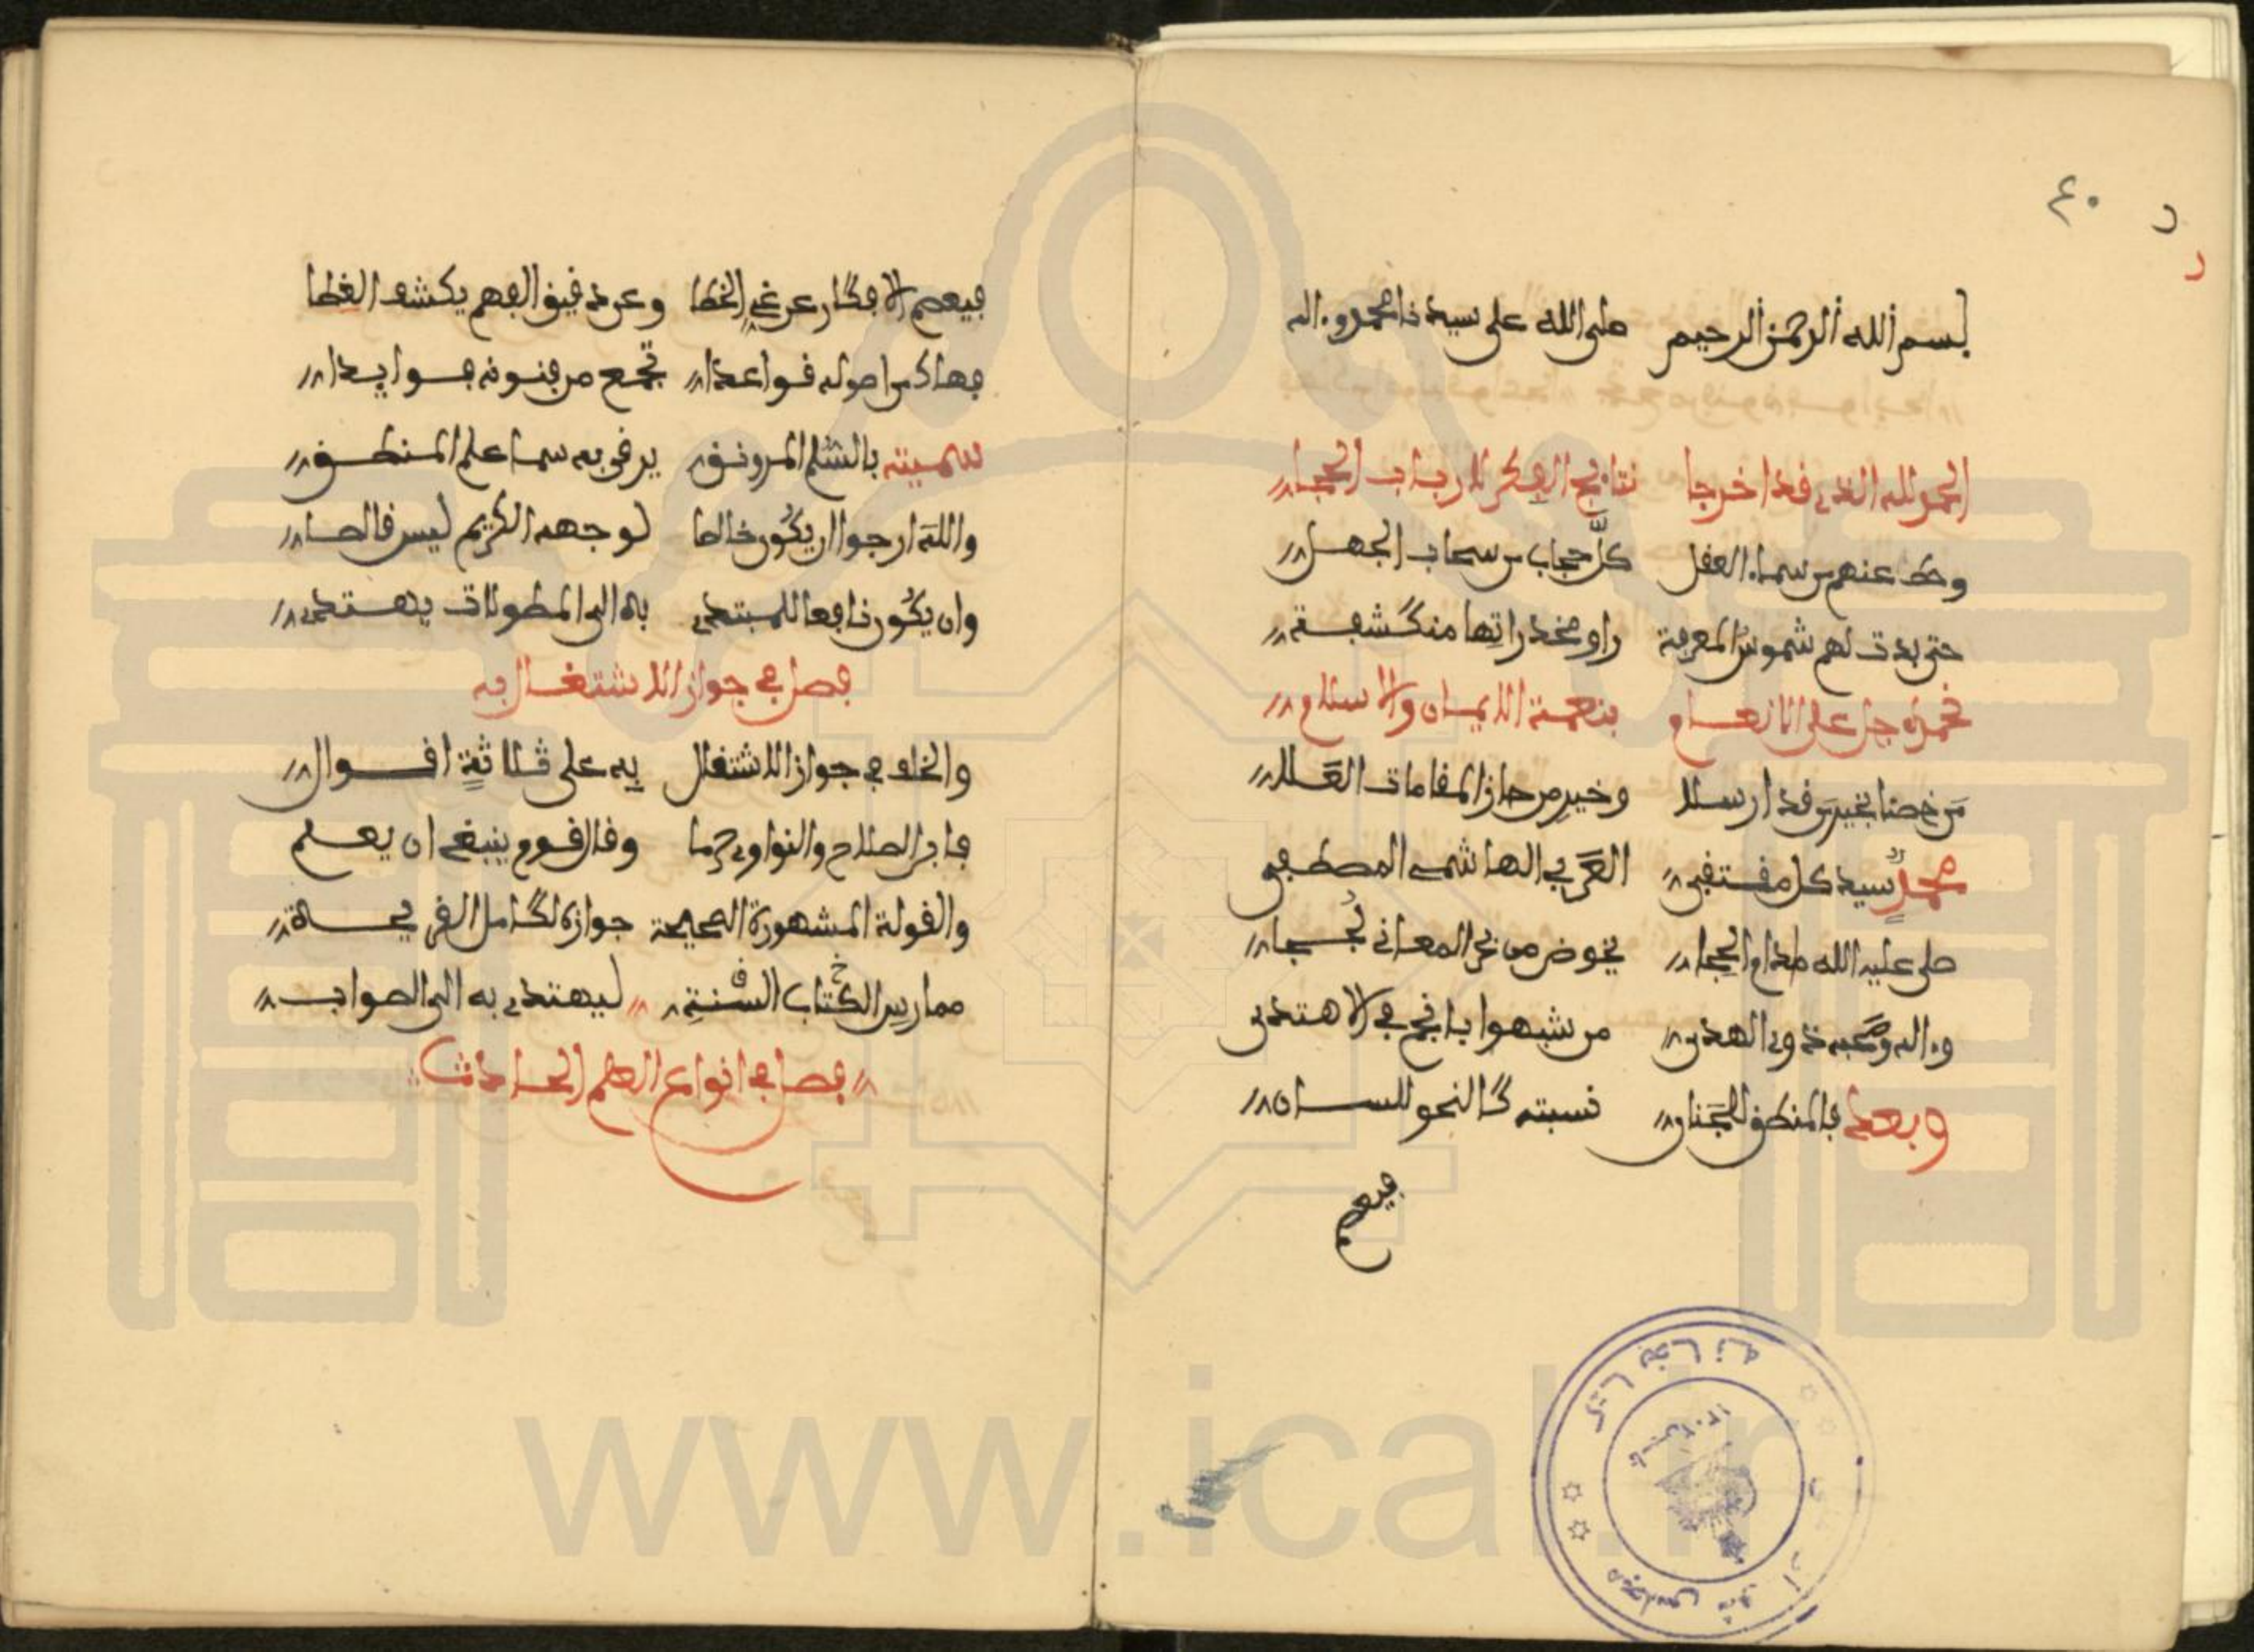 ٤٠
بسم الله الرحمن الرحيم صلى الله على سيدنا محمد وءاله
الحمد لله الذي قد اخرجا نتائج الفكر لارباب الحجا
وحط عنهم من سماء العقل كل حجاب من سحاب الجهل
حتى بدت لهم شموس المعرفة راو مخدراتها منكشفة
نحمده جل على الانعام بنعمة الايمان والاسلام
من خصنا بخير من قد ارسلا وخير من حاز المقامات العلا
محمد سيد كل مقتفى العربي الهاشمي المصطفى
صلى عليه الله مادام الحجا يخوض من بحر المعاني لججا
وءاله وصحبه ذوي الهدى من شبهوا بانجم في الاهتدى
وبعد فالمنطق للجنان نسبته كالنحو للسان
فيعصم
فيعصم الافكار عن غي الخطا وعن دقيق الفهم يكشف الغطا
فهاك من اصوله قواعدا تجمع من فنونه فوايدا
سميته بالسلم المرونق يرقى به سما علم المنطق
والله ارجوا ان يكون خالصا لوجهه الكريم ليس قالصا
وان يكون نافعا للمبتدي به الى المطولات يهتدي
فصل في جواز الاشتغال به
والخلف في جواز الاشتغال به على ثلاثة اقوال
فابن الصلاح والنواوي حرما وقال قوم ينبغي ان يعلم
والقولة المشهورة الصحيحة جوازه لكامل القريحة
ممارس الكتاب السنة ليهتدي به الى الصواب
فصل في انواع العلم الحادث
كتابخانه مجلس شورای
www.ical.ir